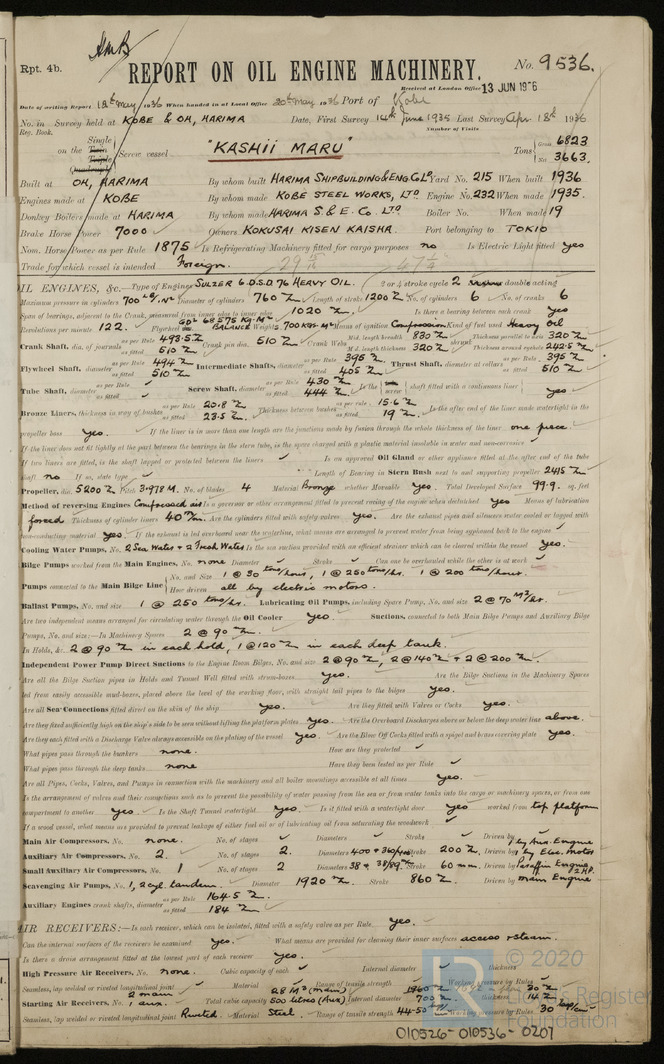 Rpt. 4b.
REPORT ON OIL ENGINE MACHINERY.
No. 9536.
Received at London Office 13 JUN 1936
Date of writing Report 18th May 1936 When handed in at Local Office 20th May 1936 Port of Kobe
No. in Survey held at KOBE & OH, HARIMA Date, First Survey 14th June 1935 Last Survey Apr 18th 1936
Reg. Book. Number of Visits
on the Single Twin Triple Quadruple Screw vessel "KASHII MARU" Tons Gross 6823 Net 3663.
Built at OH, HARIMA By whom built HARIMA SHIPBUILDING & ENG Co Ld Yard No. 215 When built 1936
Engines made at KOBE By whom made KOBE STEEL WORKS, LTD Engine No. 232 When made 1935.
Donkey Boilers made at HARIMA By whom made HARIMA S. & E. Co. LTD Boiler No. When made 19
Brake Horse Power 7000 Owners KOKUSAI KISEN KAISHA. Port belonging to TOKIO
Nom. Horse Power as per Rule 1875 Is Refrigerating Machinery fitted for cargo purposes no Is Electric Light fitted yes
Trade for which vessel is intended Foreign.
OIL ENGINES, &c.—Type of Engines SULZER 6.D.S.D. 76 HEAVY OIL. 2 or 4 stroke cycle 2 double acting
Maximum pressure in cylinders Diameter of cylinders 760 Length of stroke 1200 No. of cylinders 6 No. of cranks 6
Span of bearings, adjacent to the Crank, measured from inner edge to inner edge 1020 Is there a bearing between each crank yes
Revolutions per minute 122. Flywheel Means of ignition Compression Kind of fuel used Heavy oil
Crank Shaft, dia. of journals as per Rule 493.5 as fitted 510 Crank pin dia. 510 Crank Webs Mid. length breadth 830 Mid. length thickness 320 shrunk Thickness parallel to axis 320 Thickness around eyehole 242.5
Flywheel Shaft, diameter as per Rule 494 as fitted 510 Intermediate Shafts, diameter as per Rule 395 as fitted 405 Thrust Shaft, diameter at collars as per Rule 395 as fitted 510
Tube Shaft, diameter as per Rule as fitted Screw Shaft, diameter as per Rule 430 as fitted 444 Is the screw shaft fitted with a continuous liner yes
Bronze Liners, thickness in way of bushes as per Rule 20.8 as fitted 23.5 Thickness between bushes as per rule 15.6 as fitted 19 Is the after end of the liner made watertight in the
propeller boss yes. If the liner is in more than one length are the junctions made by fusion through the whole thickness of the liner one piece.
If the liner does not fit tightly at the part between the bearings in the stern tube, is the space charged with a plastic material insoluble in water and non-corrosive
If two liners are fitted, is the shaft lapped or protected between the liners Is an approved Oil Gland or other appliance fitted at the after end of the tube
shaft no If so, state type Length of Bearing in Stern Bush next to and supporting propeller 2415
Propeller, dia. 5200 Pitch 3.978 M. No. of blades 4 Material Bronze whether Moveable Yes. Total Developed Surface 99.9. sq. feet
Method of reversing Engines Compressed air Is a governor or other arrangement fitted to prevent racing of the engine when declutched yes Means of lubrication
forced Thickness of cylinder liners 40 Are the cylinders fitted with safety valves yes. Are the exhaust pipes and silencers water cooled or lagged with
non-conducting material yes. If the exhaust is led overboard near the waterline, what means are arranged to prevent water from being syphoned back to the engine
Cooling Water Pumps, No. 2 Sea Water & 2 Fresh Water Is the sea suction provided with an efficient strainer which can be cleared within the vessel yes.
Bilge Pumps worked from the Main Engines, No. none Diameter Stroke Can one be overhauled while the other is at work
Pumps connected to the Main Bilge Line No. and Size 1 @ 30 tons/hours, 1 @ 250 tons/hr. 1 @ 200 tons/hour.
How driven all by electric motors.
Ballast Pumps, No. and size 1 @ 250 tons/hr. Lubricating Oil Pumps, including Spare Pump, No. and size 2 @ 70 M3/hr.
Are two independent means arranged for circulating water through the Oil Cooler yes Suctions, connected to both Main Bilge Pumps and Auxiliary Bilge
Pumps, No. and size:—In Machinery Spaces 2 @ 90
In Holds, &c. 2 @ 90 in each hold, 1 @ 120 in each deep tank.
Independent Power Pump Direct Suctions to the Engine Room Bilges, No. and size 2 @ 90, 2 @ 140 & 2 @ 200
Are all the Bilge Suction pipes in Holds and Tunnel Well fitted with strum-boxes yes. Are the Bilge Suctions in the Machinery Spaces
led from easily accessible mud-boxes, placed above the level of the working floor, with straight tail pipes to the bilges yes.
Are all Sea Connections fitted direct on the skin of the ship yes. Are they fitted with Valves or Cocks yes.
Are they fixed sufficiently high on the ship's side to be seen without lifting the platform plates yes. Are the Overboard Discharges above or below the deep water line above.
Are they each fitted with a Discharge Valve always accessible on the plating of the vessel yes. Are the Blow Off Cocks fitted with a spigot and brass covering plate yes.
What pipes pass through the bunkers none. How are they protected
What pipes pass through the deep tanks none Have they been tested as per Rule
Are all Pipes, Cocks, Valves, and Pumps in connection with the machinery and all boiler mountings accessible at all times yes.
Is the arrangement of valves and their connections such as to prevent the possibility of water passing from the sea or from water tanks into the cargo or machinery spaces, or from one
compartment to another yes. Is the Shaft Tunnel watertight yes. Is it fitted with a watertight door yes worked from top platform
If a wood vessel, what means are provided to prevent leakage of either fuel oil or lubricating oil from saturating the woodwork
Main Air Compressors, No. none. No. of stages Diameters Stroke Driven by
Auxiliary Air Compressors, No. 2. No. of stages 2. Diameters Stroke 200 Driven by 1 by Aux. Engine 1 by Elec. Motor
Small Auxiliary Air Compressors, No. 1 No. of stages 2 Diameters Stroke 60 mm. Driven by Paraffin Engine
Scavenging Air Pumps, No. 1, 2 cyl. tandem. Diameter 1920 Stroke 860 Driven by main Engine
Auxiliary Engines crank shafts, diameter as per Rule 164.5 as fitted 184
AIR RECEIVERS:—Is each receiver, which can be isolated, fitted with a safety valve as per Rule yes.
Can the internal surfaces of the receivers be examined yes. What means are provided for cleaning their inner surfaces access & steam.
Is there a drain arrangement fitted at the lowest part of each receiver yes.
High Pressure Air Receivers, No. none. Cubic capacity of each Internal diameter thickness
Seamless, lap welded or riveted longitudinal joint Material Range of tensile strength Working pressure by Rules
Starting Air Receivers, No. 2 main 1 aux. Total cubic capacity 28 M3 (main) 500 litres (Aux) Internal diameter 1960 700 thickness 30 14
Seamless, lap welded or riveted longitudinal joint Riveted. Material Steel. Range of tensile strength 44-50 Working pressure by Rules 30
© 2020
Lloyd's Register
Foundation
010526-010536-0201